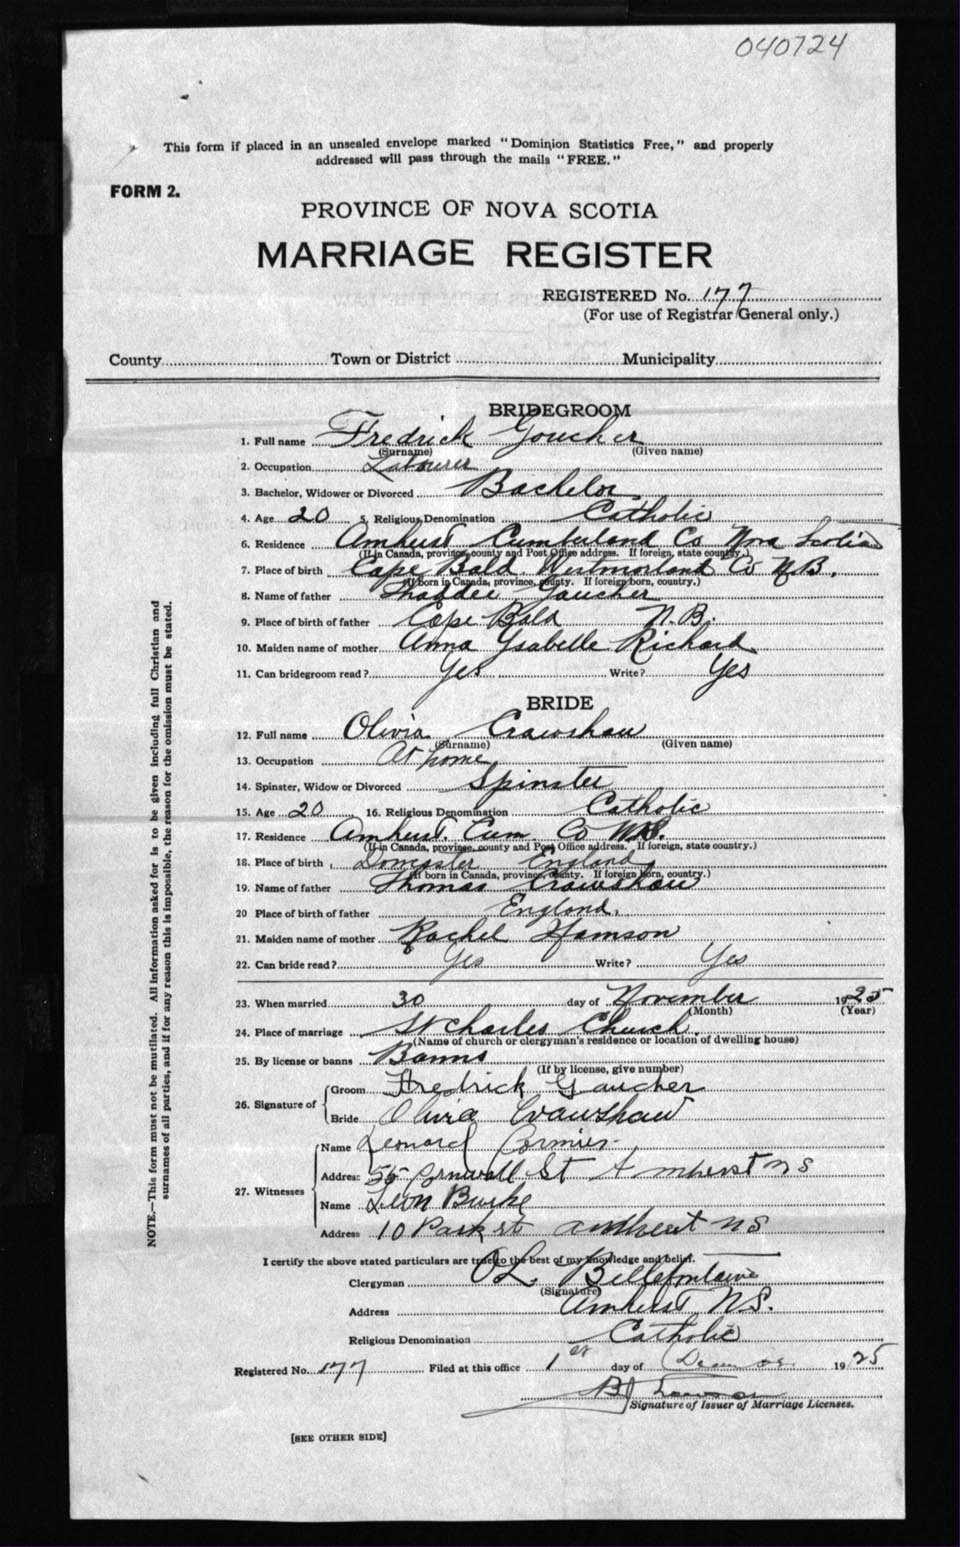 040724
This form if placed in an unsealed envelope marked "Dominion Statistics Free," and properly
addressed will pass through the mails "FREE."
FORM 2.
PROVINCE OF NOVA SCOTIA
MARRIAGE REGISTER
REGISTERED No. 177
(For use of Registrar General only.)
County Town or District Municipality
NOTE.—This form must not be mutilated. All information asked for is to be given including full Christian and
surnames of all parties, and if for any reason this is impossible, the reason for the omission must be stated.
BRIDEGROOM
1. Full name Fredrick Goucher
(Surname) (Given name)
2. Occupation Labourer
3. Bachelor, Widower or Divorced Bachelor
4. Age 20 5. Religious Denomination Catholic
6. Residence Amherst Cumberland Co Nova Scotia
(If in Canada, province, county and Post Office address. If foreign, state country.)
7. Place of birth Cape Bald Westmorland Co N.B.
(If born in Canada, province, county. If foreign born, country.)
8. Name of father Thaddee Gaucher
9. Place of birth of father Cape Bald N.B.
10. Maiden name of mother Anna Ysabelle Richard
11. Can bridegroom read? Yes Write? Yes
BRIDE
12. Full name Olivia Crawshaw
(Surname) (Given name)
13. Occupation At home
14. Spinster, Widow or Divorced Spinster
15. Age 20 16. Religious Denomination Catholic
17. Residence Amherst. Cum Co
(If in Canada, province, county and Post Office address. If foreign, state country.)
18. Place of birth Doncaster England
(If born in Canada, province, county. If foreign born, country.)
19. Name of father Thomas Crawshaw
20 Place of birth of father England.
21. Maiden name of mother Rachel Hamson
22. Can bride read? Yes Write? Yes
23. When married 30 day of November 1925
(Month) (Year)
24. Place of marriage St Charles Church.
(Name of church or clergyman's residence or location of dwelling house)
25. By license or banns Banns
(If by license, give number)
26. Signature of Groom Fredrick Gaucher
Bride Olivia Crawshaw
27. Witnesses Name Leonard Cormier
Address 55 Cornwall St Amherst N S
Name Leon Burke
Address 10 Park st amherst N S
I certify the above stated particulars are true to the best of my knowledge and belief.
Clergyman OL Bellefontaine
(Signature)
Address Amherst N.S.
Religious Denomination Catholic
Registered No. 177 Filed at this office 1st day of 1925
Signature of Issuer of Marriage Licenses.
[SEE OTHER SIDE]